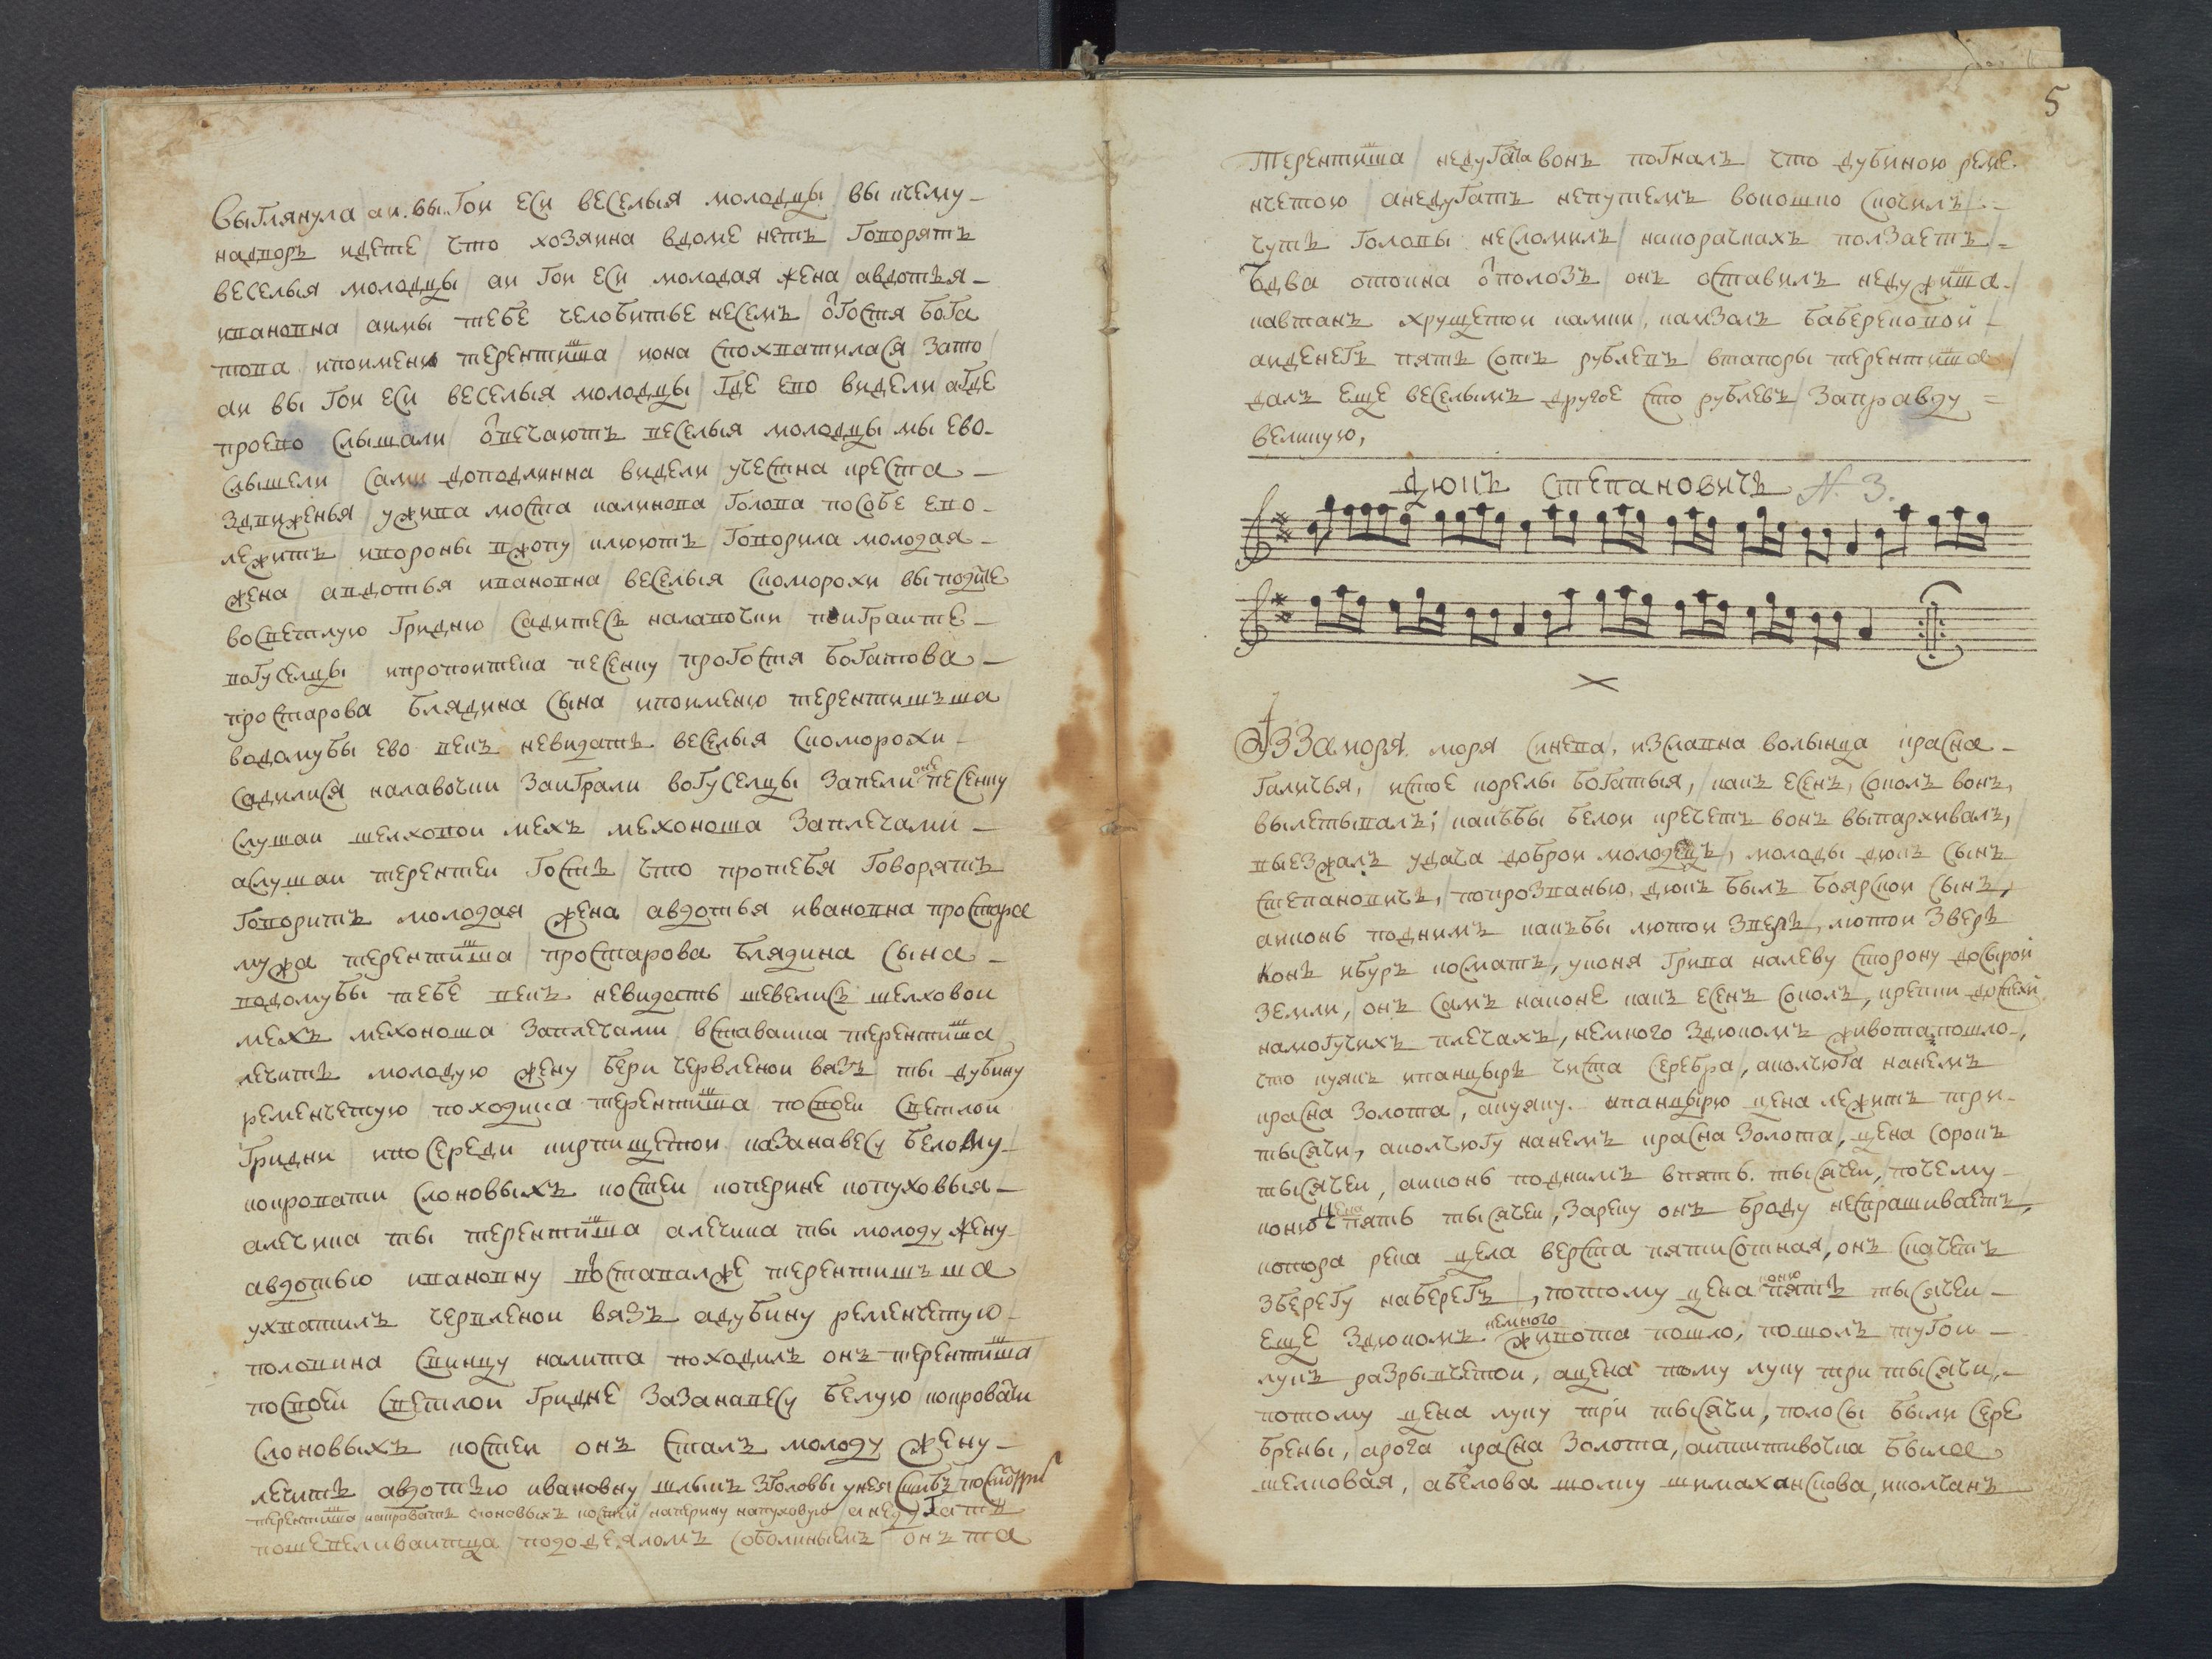 выглянула аи вы гои еси веселыя молодцы вы кчему
надворъ идете что хозяина вдоме нетъ говорятъ
веселыя молодцы аи гои еси молодая жена авдотья
ивановна аимы тебе челобитье несемъ ѿгостя бога
това ипоимени терентиша иона спохватилася зато
аи вы гои еси веселыя молодцы где ево видели агде
проево слышали ѿвечаютъ веселыя молодцы мы ево
слышели сами доподлинна видели учестна креста
здвиженья ужива моста калинова голова пособе ево
лежитъ ивороны вжопу клюютъ говорила молодая
жена авдотья ивановна веселыя скоморохи вы подите
восветлую гридню садитесь налавочки поиграите
вогуселцы ипропоитека песенку прогостя богатова
простарова блядина сына ипоименю терентишъша
водомубы ево векъ невидатъ веселыя скоморохи
садилися налавочки заиграли вогуселцы запели оне песенку
слушаи шелковои мехъ мехоноша заплечами
аслушаи терентеи гость что протебя говорятъ
говоритъ молодая жена авдотья ивановна простара
мужа терентиша простарова блядина сына
водомубы тебе векъ невидать шевелись шелковои
мехъ мехоноша заплечами вставаика терентиша
лечитъ молодую жену бери червленои вязъ ты дубину
ременчетую походика терентиша посвоеи светлои
гридни ипосереди кирпищетои казанавесу белому
коировати слоновыхъ костеи коперине копуховыя
алечика ты терентиша алечика ты молоду жену
авдотью ивановну вставалже терентишъша
ухватилъ червленои вязъ адубину ременчетую
половина свинцу налита походилъ онъ терентиша
посвоеи светлои гридне зазанавесу белую кокровати
слоновыхъ костеи онъ сталъ молоду жену
лечить авдотью ивановну шлыкъ зголовы унея сшибъ посмотритъ
терентиша накровать слоновыхъ костеи наперину напуховую анедугатъ
пошевеливаитца пододеяломъ соболиныемъ онъта
5
терентиша недугата вонъ погналъ что дубиною реме
нчетою анедугатъ непутемъ вокошко скочилъ
чуть головы несломилъ накорачкахъ ползаетъ
одва отокна ѿползъ онъ оставилъ недужиша
кавтанъ хрущетои камки камзалъ баберековои
аиденегъ пять сотъ рублевъ втапоры терентиша
далъ еще веселымъ другое сто рублевъ заправду
великую,
дюкъ степановичъ N. 3.
Иззаморя моря синева, изславна волынца красна
галичья, истое корелы богатыя, какъ есенъ соколъ вонъ
вылетывалъ, какъбы белои кречетъ вонъ выпархивалъ,
выезжалъ удача доброи молодецъ, молоды дюкъ сынъ
степановичъ, попрозванью дюкъ былъ боярскои сынъ,
аиконь поднимъ какъбы лютои зверь, лютои зверь
конь ибуръ косматъ, уконя грива налеву сторону досырои
земли, онъ самъ наконе какъ есенъ соколъ, крепки доспехи
намогучихъ плечахъ, немного здюкомъ живота пошло,
что куякъ ипанцырь чиста серебра, аколчюга нанемъ
красна золота, акуяку ипанцырю цена лежитъ три
тысячи, аколчюгу нанемъ красна золота, цена сорокъ
тысячеи, аиконь поднимъ впять тысячеи, почему
коню цена пять тысячеи, зареку онъ броду неспрашиваетъ,
котора река цела верста пятисотная, онъ скачетъ
зберегу наберегъ, потому цена коню пять тысячеи
еще здюкомъ немного живота пошло, пошолъ тугои
лукъ разрывчетои, ацена тому луку три тысячи,
потому цена луку три тысячи, полосы были сере
брены, арога красна золота, аитетивочка была
шелковая, абелова шолку шимахански, иколчанъ